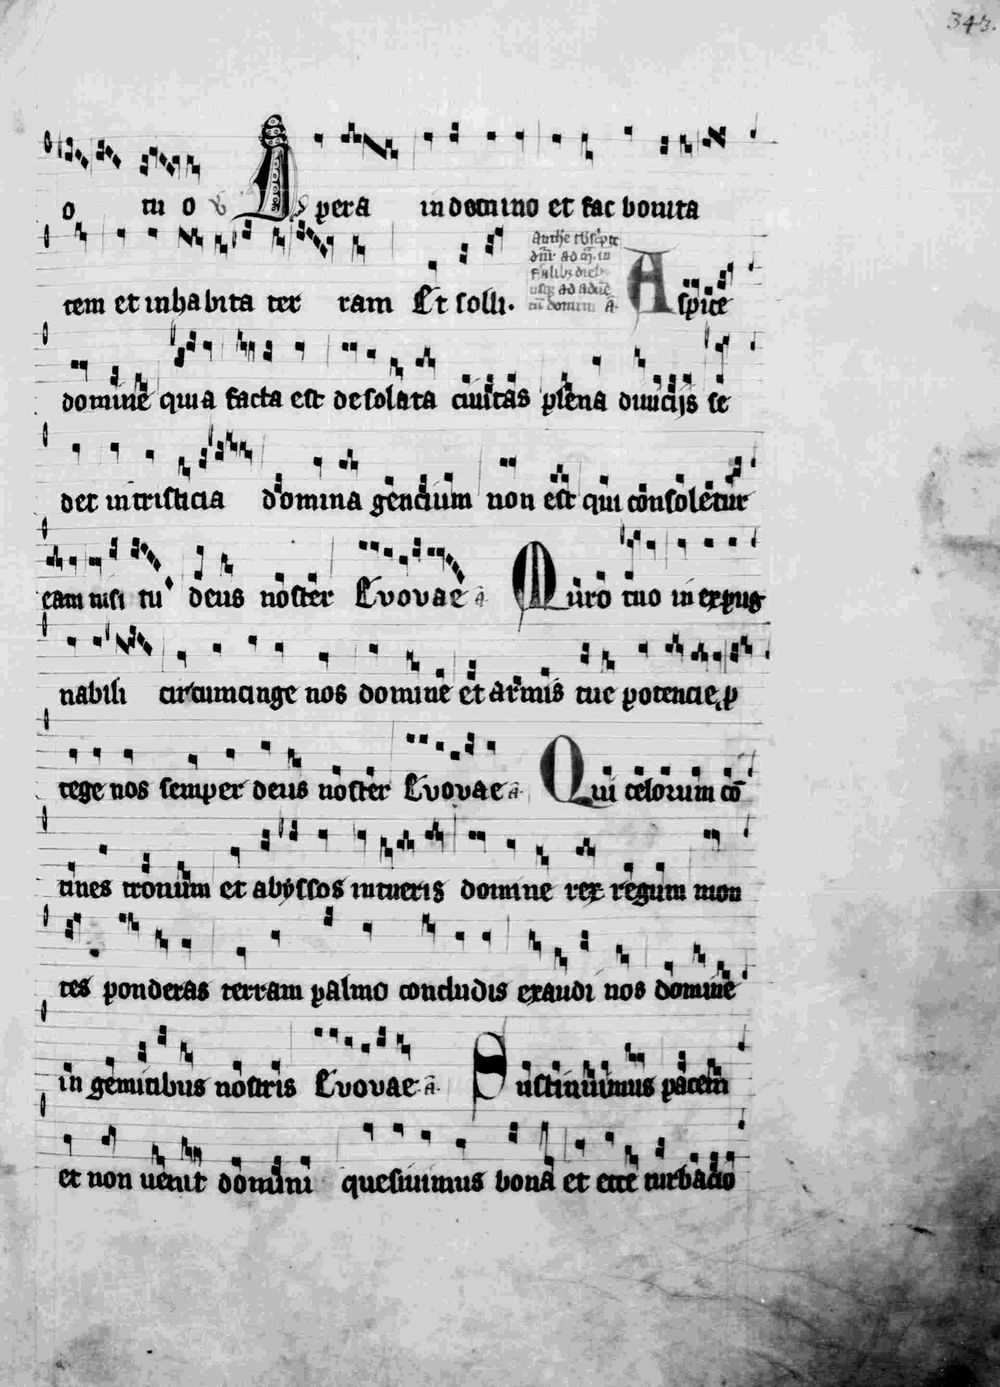 343.
o tu o Spera in domino et fac bonita
tem et inhabita ter ram Et solli.
Aspice
domine quia facta est desolata ciuitas plena diuicijs se
det in tristicia domina gencium non est qui consoletur
eam nisi tu deus noster Evovae a
Muro tuo inexpug
nabili circumcinge nos domine et armis tue potencie p
tege nos semper deus noster Evovae a
Qui celorum cō
tines tronum et abyssos intueris domine rex regum mon
tes ponderas terram palmo concludis exaudi nos domine
in gemitibus nostris Evovae a
Sustinuimus pacem
et non uenit domini quesiuimus bona et ecce turbacio